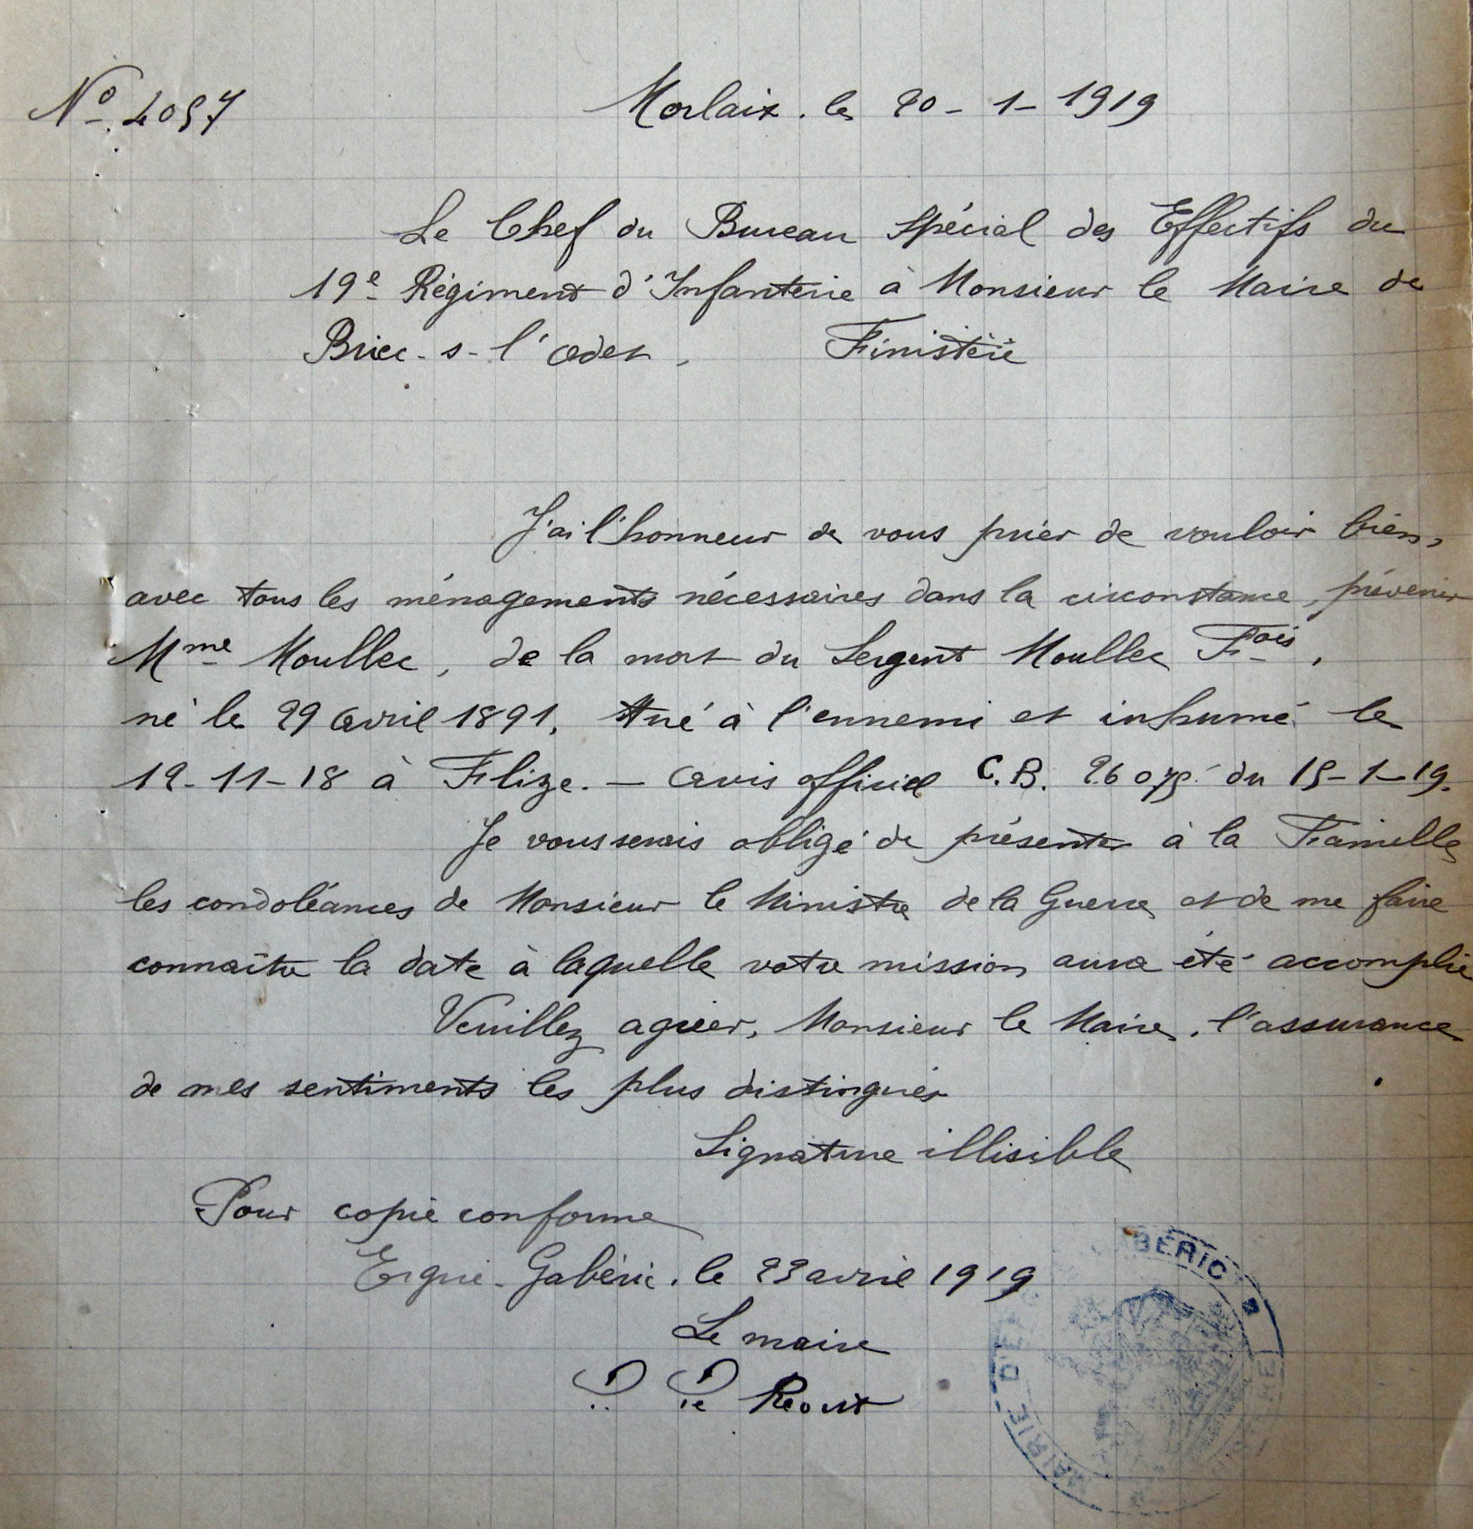 No 4057
Morlaix. le 20-1-1919
Le Chef du Bureau Spécial des Effectifs du
19e Régiment d'Infanterie à Monsieur le Maire de
Briec-s-l'Odet, Finistère
J'ai l'honneur de vous prier de vouloir bien,
avec tous les ménagements nécessaires dans la circonstance, prévenir
Mme Moullec, de la mort du Sergent Moullec Fois,
né le 29 Avril 1891, tué à l'ennemi et inhumé le
12-11-18 à Flize. — Avis officiel C.B. 26075 du 15-1-19.
Je vous serais obligé de présenter à la Famille
les condoléances de Monsieur le Ministre de la Guerre et de me faire
connaître la date à laquelle votre mission aura été accomplie
Veuillez agréer, Monsieur le Maire, l'assurance
de mes sentiments les plus distingués
Signature illisible
Pour copie conforme
Ergué-Gabéric, le 23 avril 1919
Le maire
P. Pe
MAIRIE D'E ABÉRIC